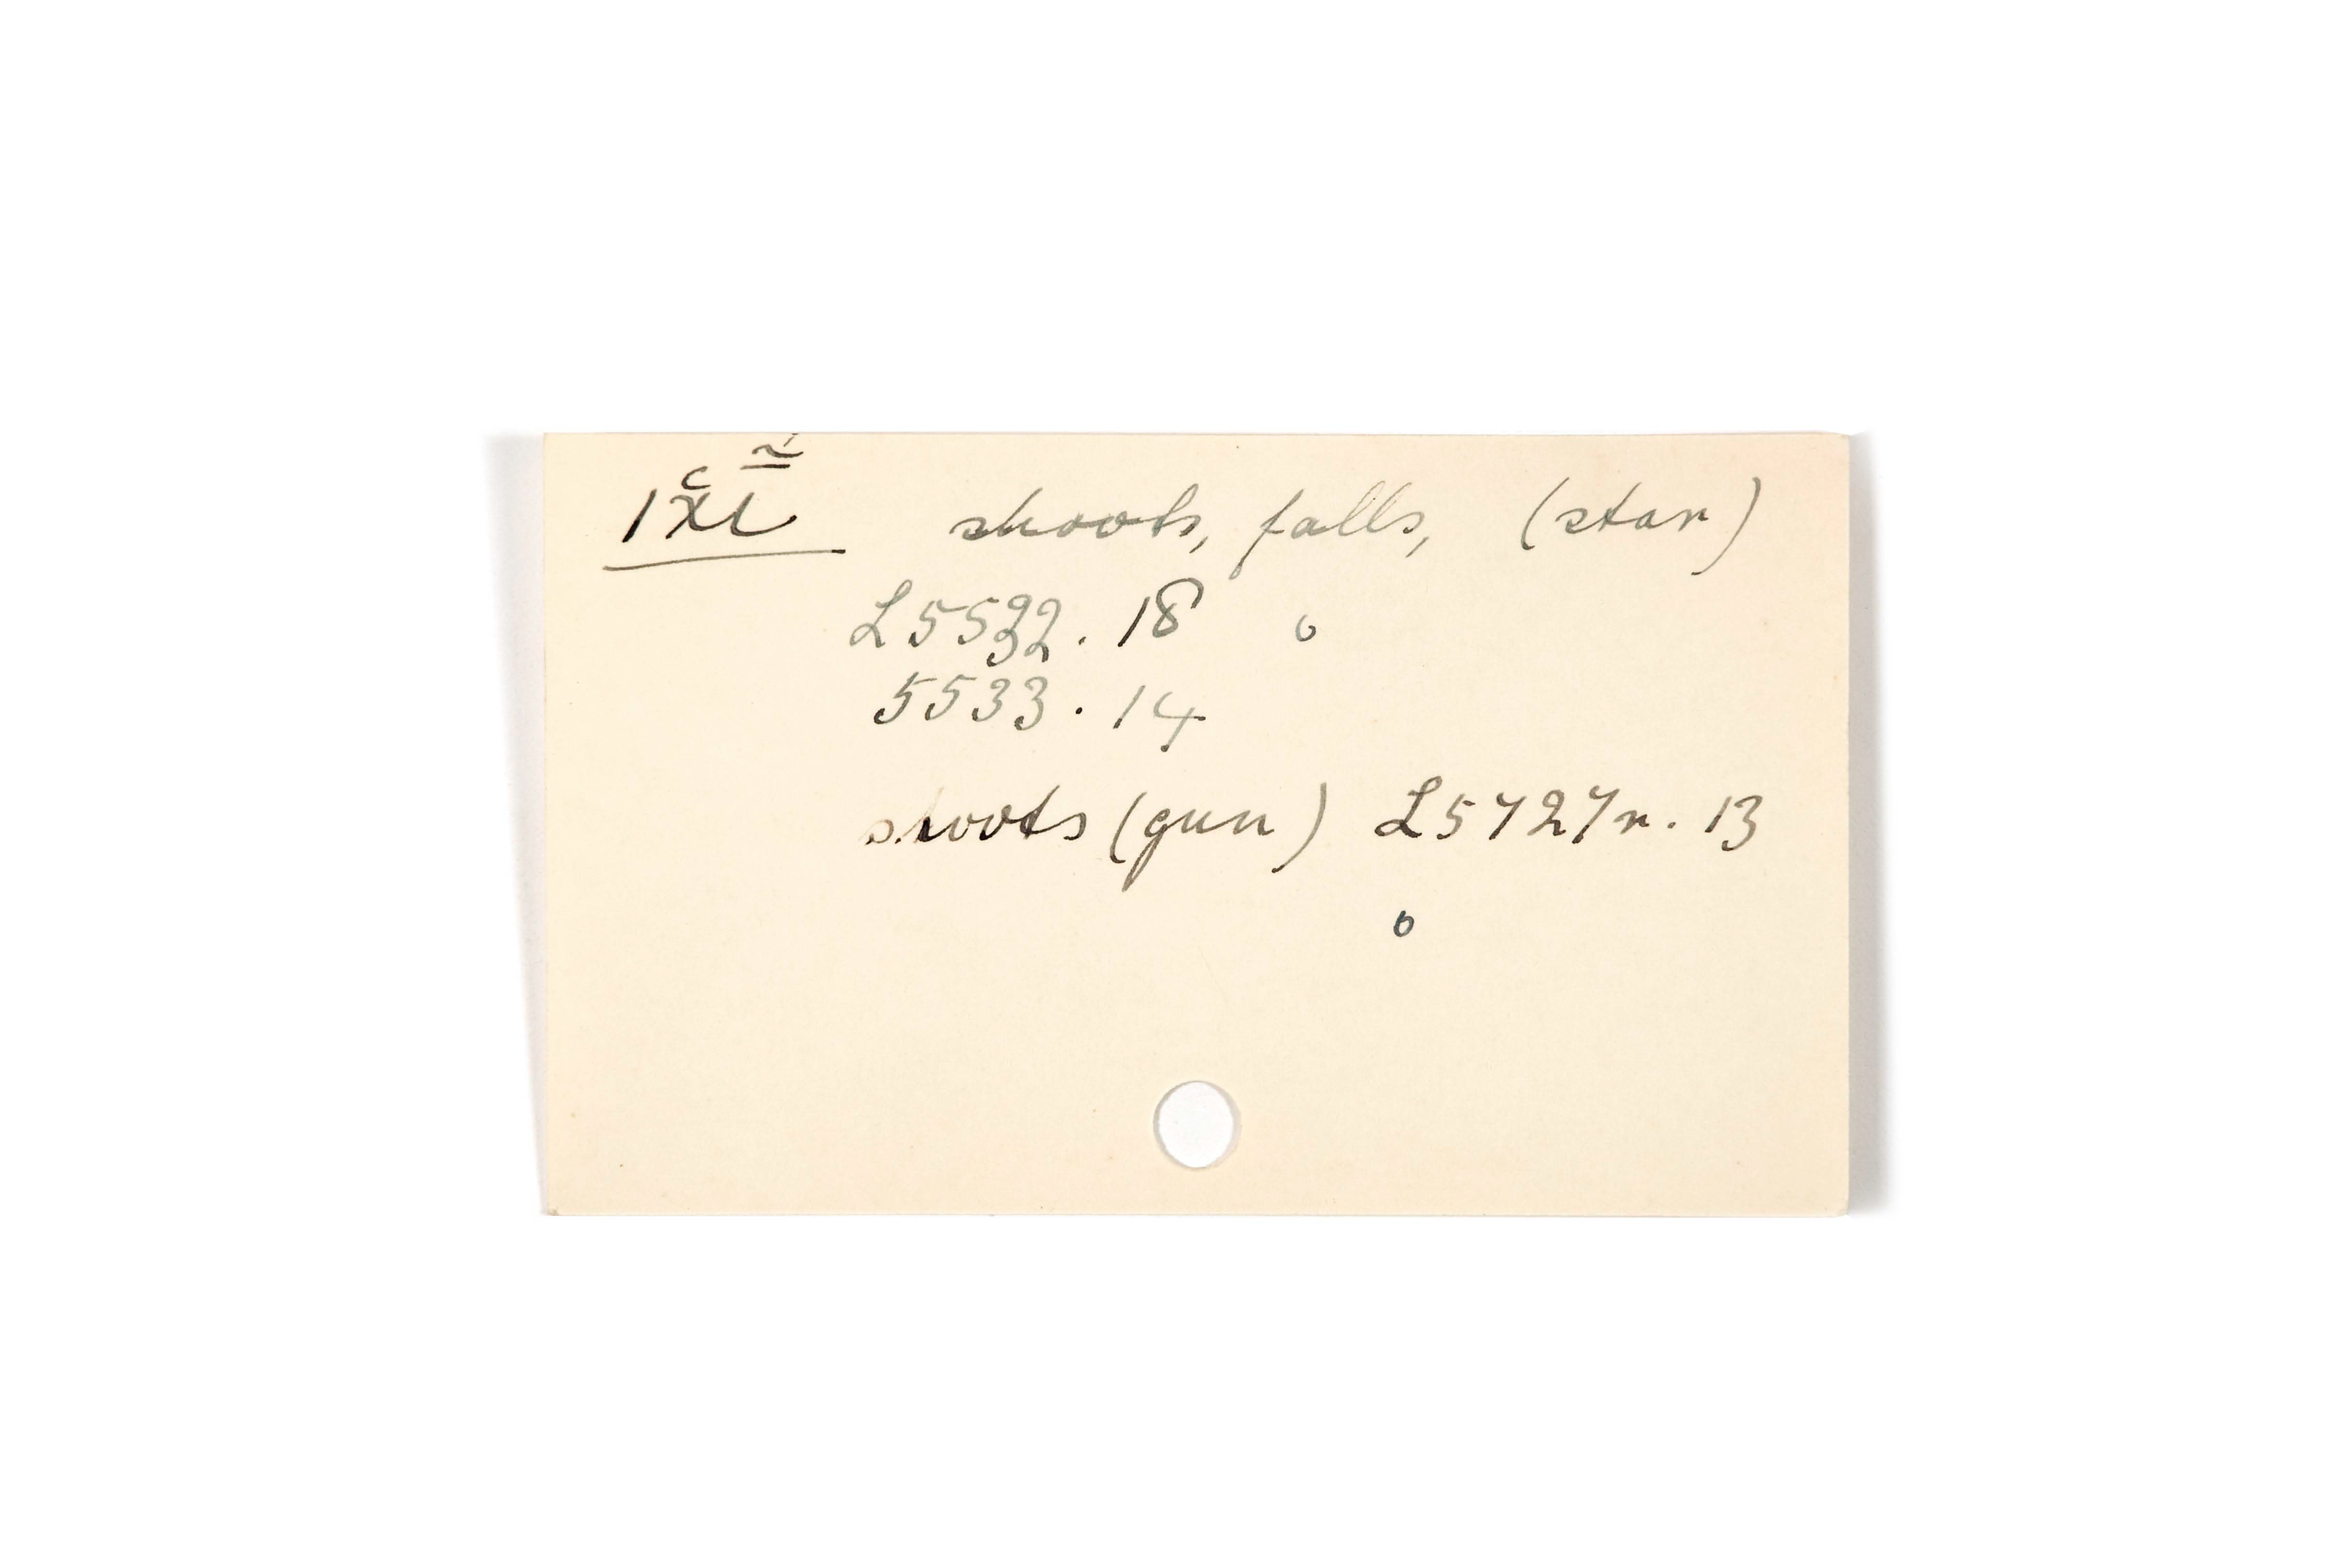 shoots, falls, (star)
L5532. 18 o
5533. 14
shoots (gun) L5727r. 13
o